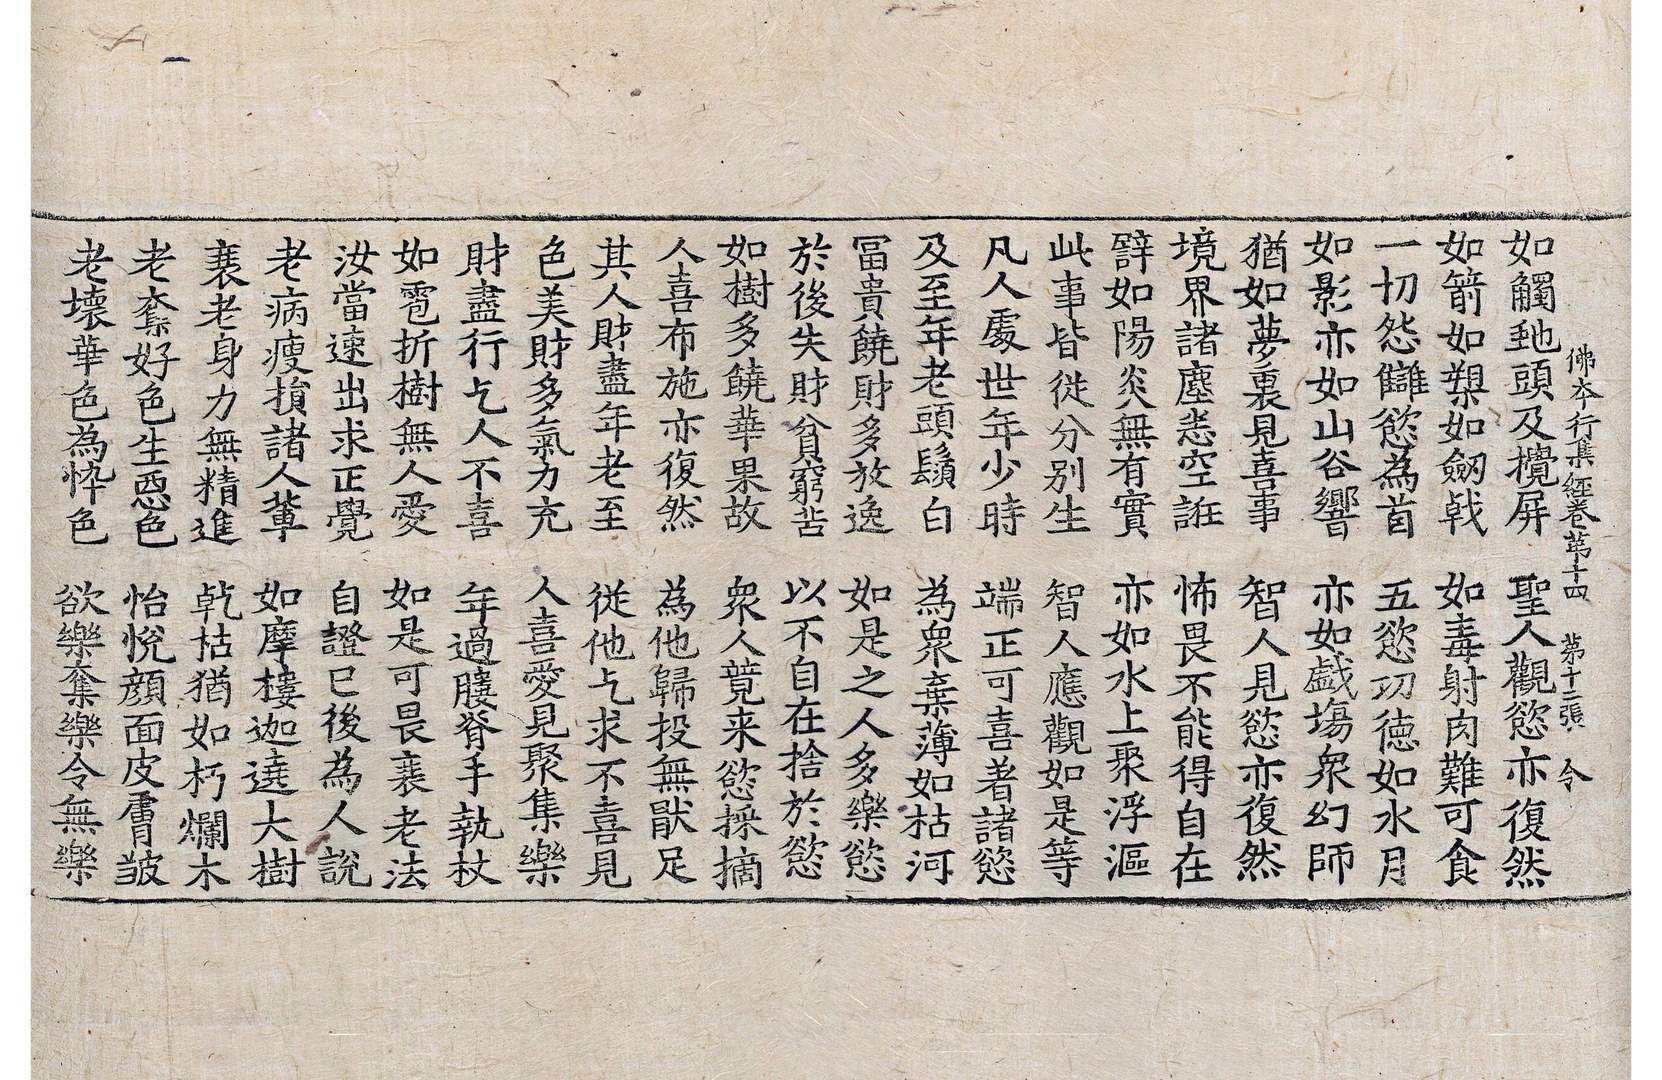 佛本行集經卷第十四 第十三張 令
如觸虵頭及攪屏 聖人觀慾亦復然
如箭如槊如劔戟 如毒射肉難可食
一切怨讎慾為首 五慾功德如水月
如影亦如山谷響 亦如戲塲衆幻師
猶如夢裏見喜事 智人見慾亦復然
境界諸塵悉空誑 怖畏不能得自在
譬如陽炎無有實 亦如水上聚浮漚
此事皆從分别生 智人應觀如是等
凡人處世年少時 端正可喜著諸慾
及至年老頭鬚白 為衆棄薄如枯河
冨貴饒財多放逸 如是之人多樂慾
於後失財貧窮苦 以不自在捨於慾
如樹多饒華果故 衆人競来慾採摘
人喜布施亦復然 為他歸投無猒足
其人財盡年老至 從他乞求不喜見
色美財多氣力充 人喜愛見聚集樂
財盡行乞人不喜 年過腰脊手執杖
如雹折樹無人愛 如是可畏衰老法
汝當速出求正覺 自證已後為人說
老病瘦損諸人輩 如摩樓迦遶大樹
衰老身力無精進 乹枯猶如朽爛木
老奪好色生惡色 怡悅顔面皮膚皺
老壞華色為忰色 欲樂奪樂令無樂